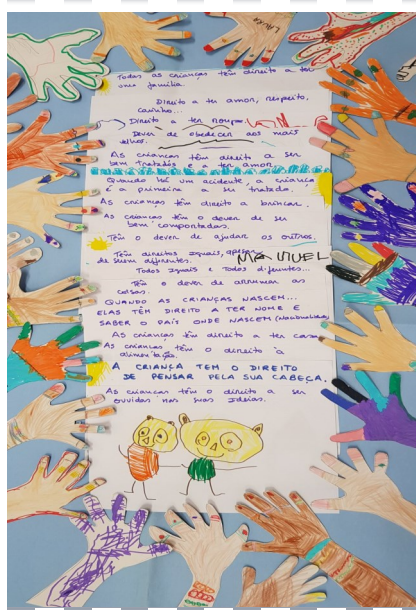 Todas as crianças têm direito a ter
uma família.
Direito a ter amor, respeito,
carinho...
Direito a ter roupa
Dever de obedecer aos mais
velhos.
As crianças têm direito a ser
bem tratadas e a ter amor.
Quando há um acidente, a criança
é a primeira a ser tratada.
As crianças têm direito a brincar.
As crianças têm o dever de ser
bem comportadas.
Têm o dever de ajudar os outros.
Têm direitos iguais, apesar
de serem diferentes.
MANUEL
Todos iguais e Todos diferentes...
Têm o dever de arrumar as
coisas.
QUANDO AS CRIANÇAS NASCEM...
ELAS TÊM DIREITO A TER NOME E
SABER O PAÍS ONDE NASCEM (Nacionalidade)
As crianças têm direito a ter casa
As crianças têm o direito à
alimentação.
A CRIANÇA TEM O DIREITO
DE PENSAR PELA SUA CABEÇA.
As crianças têm o direito a ser
ouvidas nas suas ideias.